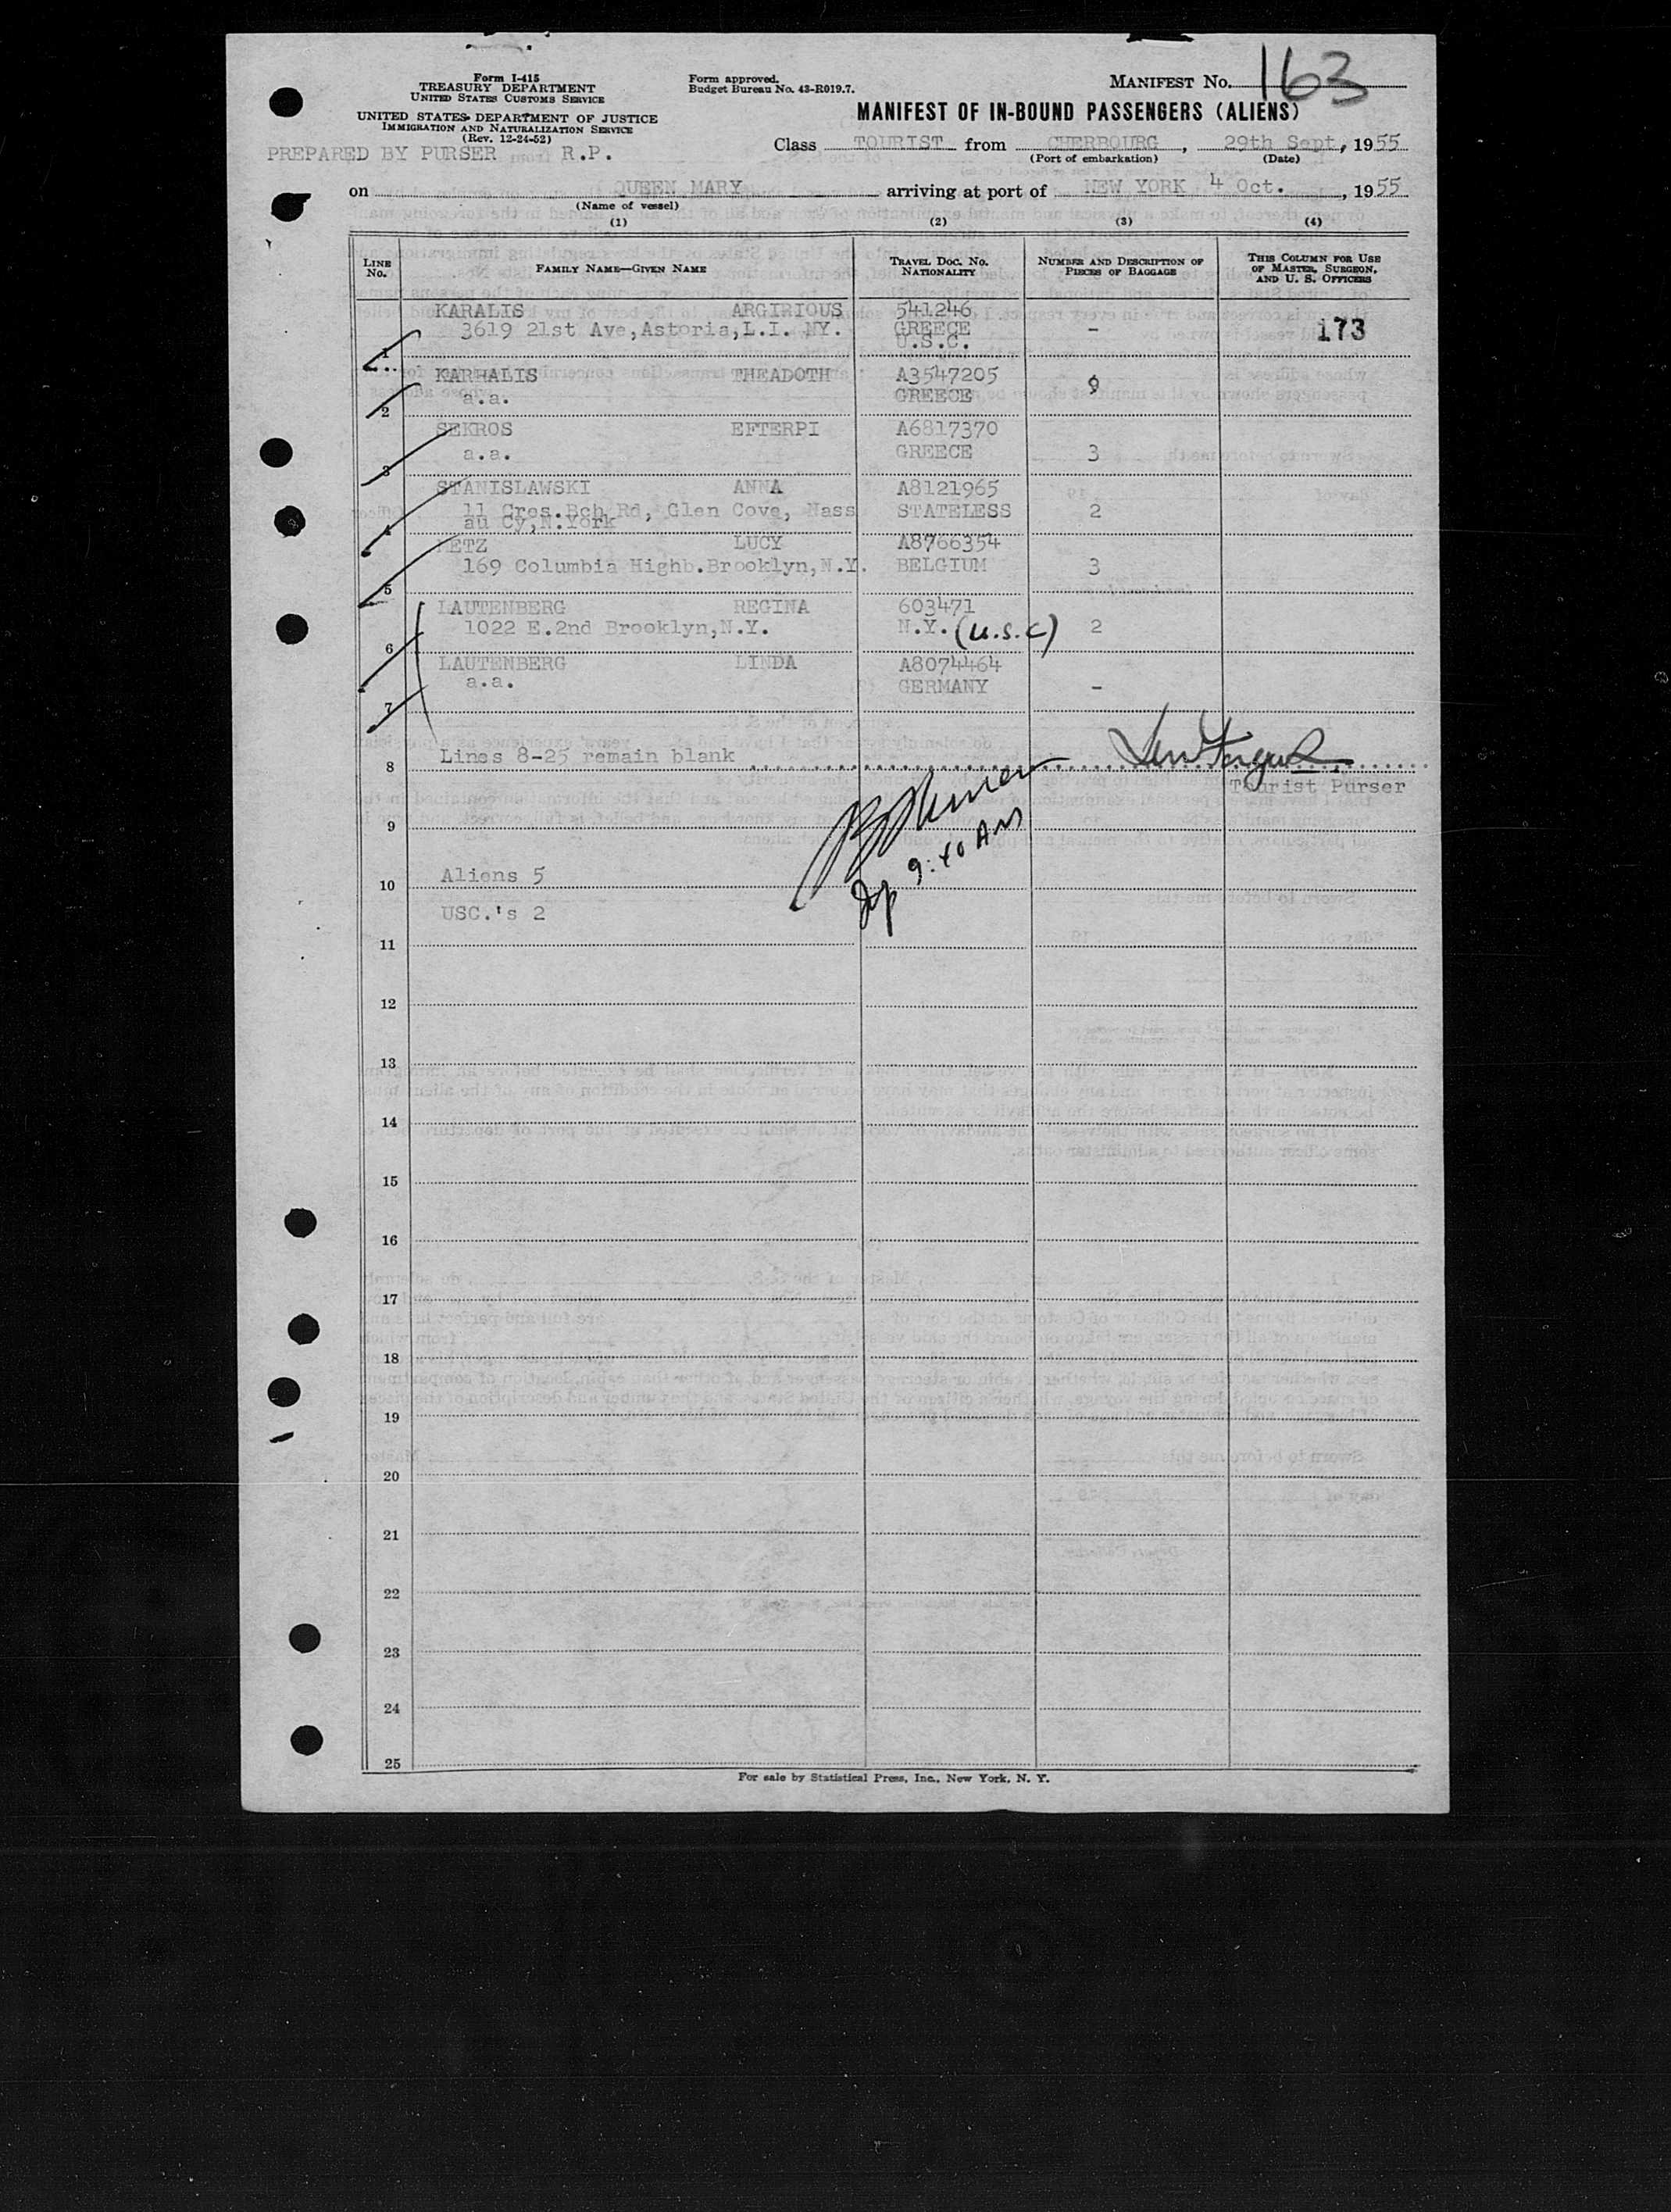 Form I-415
TREASURY DEPARTMENT
UNITED STATES CUSTOMS SERVICE
UNITED STATES DEPARTMENT OF JUSTICE
IMMIGRATION AND NATURALIZATION SERVICE
(Rev. 12-24-52)
PREPARED BY PURSER R.P.
Form approved.
Budget Bureau No. 43-R019.7.
MANIFEST NO. 163
MANIFEST OF IN-BOUND PASSENGERS (ALIENS)
Class TOURIST from CHERBOURG, 29th Sept, 1955
(Port of embarkation) (Date)
on QUEEN MARY arriving at port of NEW YORK 4 Oct., 1955
(Name of vessel)
(1) (2) (3) (4)
LINE NO. FAMILY NAME—GIVEN NAME TRAVEL DOC. NO. NATIONALITY NUMBER AND DESCRIPTION OF PIECES OF BAGGAGE THIS COLUMN FOR USE OF MASTER, SURGEON, AND U. S. OFFICERS
KARALIS ARGIRIOUS 541246
3619 21st Ave,Astoria,L.I. NY. GREECE - 173
U.S.C.
1
KARHALIS THEADOTH A3547205
a.a. GREECE
2
SEKROS EFTERPI A6817370
a.a. GREECE 3
3
STANISLAWSKI ANNA A8121965
11 Cres.Bch Rd, Glen Cove, Nass STATELESS 2
au Cy,N.York
4
METZ LUCY A8766354
169 Columbia Highb.Brooklyn,N.Y. BELGIUM 3
5
LAUTENBERG REGINA 603471
1022 E.2nd Brooklyn,N.Y. N.Y. (U.S.C) 2
6
LAUTENBERG LINDA A8074464
a.a. GERMANY -
7
Lines 8-25 remain blank
8
Tourist Purser
9
9:40 AM
Aliens 5
10
USC.'s 2
11
12
13
14
15
16
17
18
19
20
21
22
23
24
25
For sale by Statistical Press, Inc., New York, N. Y.